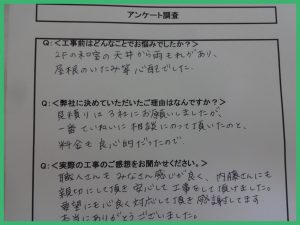 アンケート調査
Q:＜工事前はどんなことでお悩みでしたか？＞
2Fの和室の天井から雨もれがあり、
屋根のいたみ等心配でした。
Q:＜弊社に決めていただいたご理由はなんですか？＞
見積りは3社にお願いしましたが、
一番ていねいに相談にのって頂いたのと、
料金も良心的だったので
Q:＜実際の工事のご感想をお聞かせください。＞
職人さんもみなさん感じが良く、内藤さんにも
親切にして頂き安心して工事をして頂けました。
要望にも心良く対応して頂き感謝してます
本当にありがとうございました。